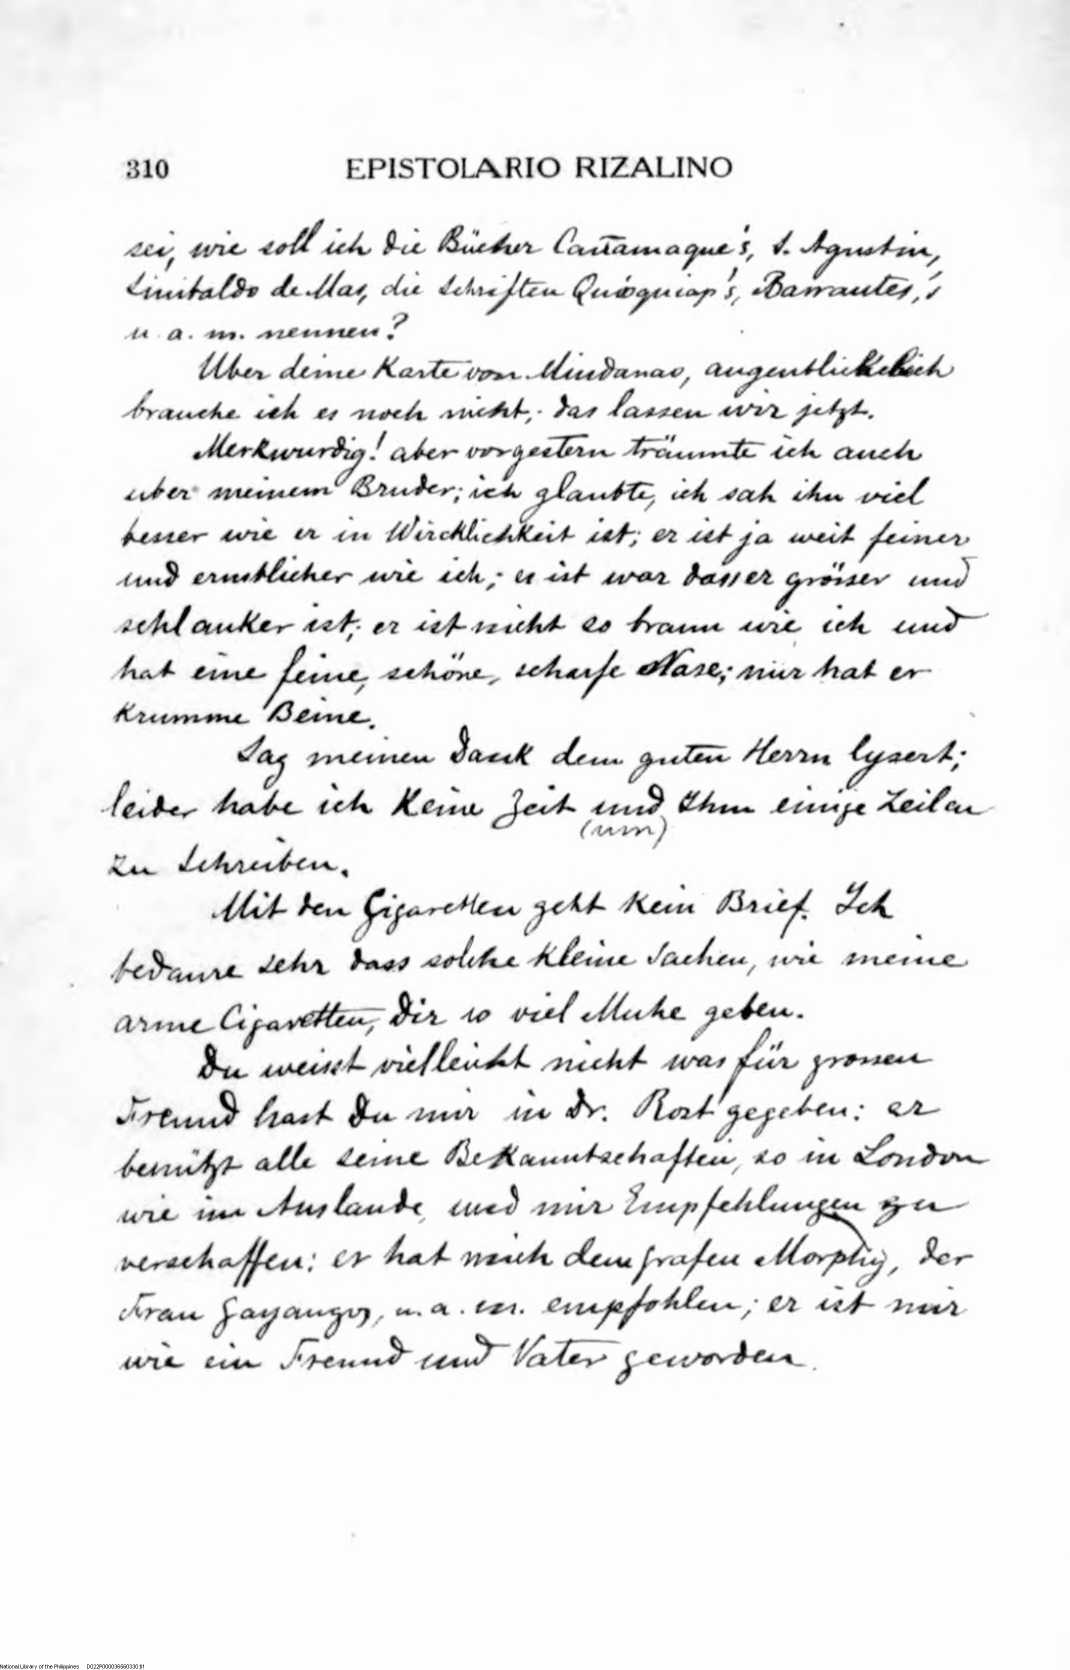 310 EPISTOLARIO RIZALINO
sei, wie soll ich die Bücher Cañamaque's, S. Agustin,
Sinibaldo de Mas, die Schriften Quioquiap's, Barrantes,'s
u. a. m. nennen?
Uber deine Karte von Mindanao, augenblickelich
brauche ich es noch nicht; das lassen wir jetzt.
Merkwurdig! aber vorgestern träumte ich auch
uber meinem Bruder; ich glaubte, ich sah ihn viel
besser wie er in Wircklichkeit ist; er ist ja weit feiner
und ernstlicher wie ich; es ist war dass er grösser und
schlanker ist; er ist nicht so braun wie ich und
hat eine feine, schöne, scharfe Nase; nur hat er
krumme Beine.
Sag meinen Dank dem guten Herrn lysert;
leider habe ich keine Zeit und Ihm einige Zeilen
(um)
zu Schreiben.
Mit den Cigaretten geht kein Brief. Ich
bedaure sehr dass solche kleine Sachen, wie meine
arme Cigaretten, Dir so viel Muhe geben.
Du weisst vielleicht nicht was für grossen
Freund hast Du mir in Dr. Rost gegeben: er
benützt alle seine Bekanntschaften, so in London
wie im Auslande, und mir Empfehlungen zu
verschaffen: er hat mich dem Grafen Morphy, der
Frau Gayangos, u. a. m. empfohlen; er ist mir
wie ein Freund und Vater geworden.
National Library of the Philippines